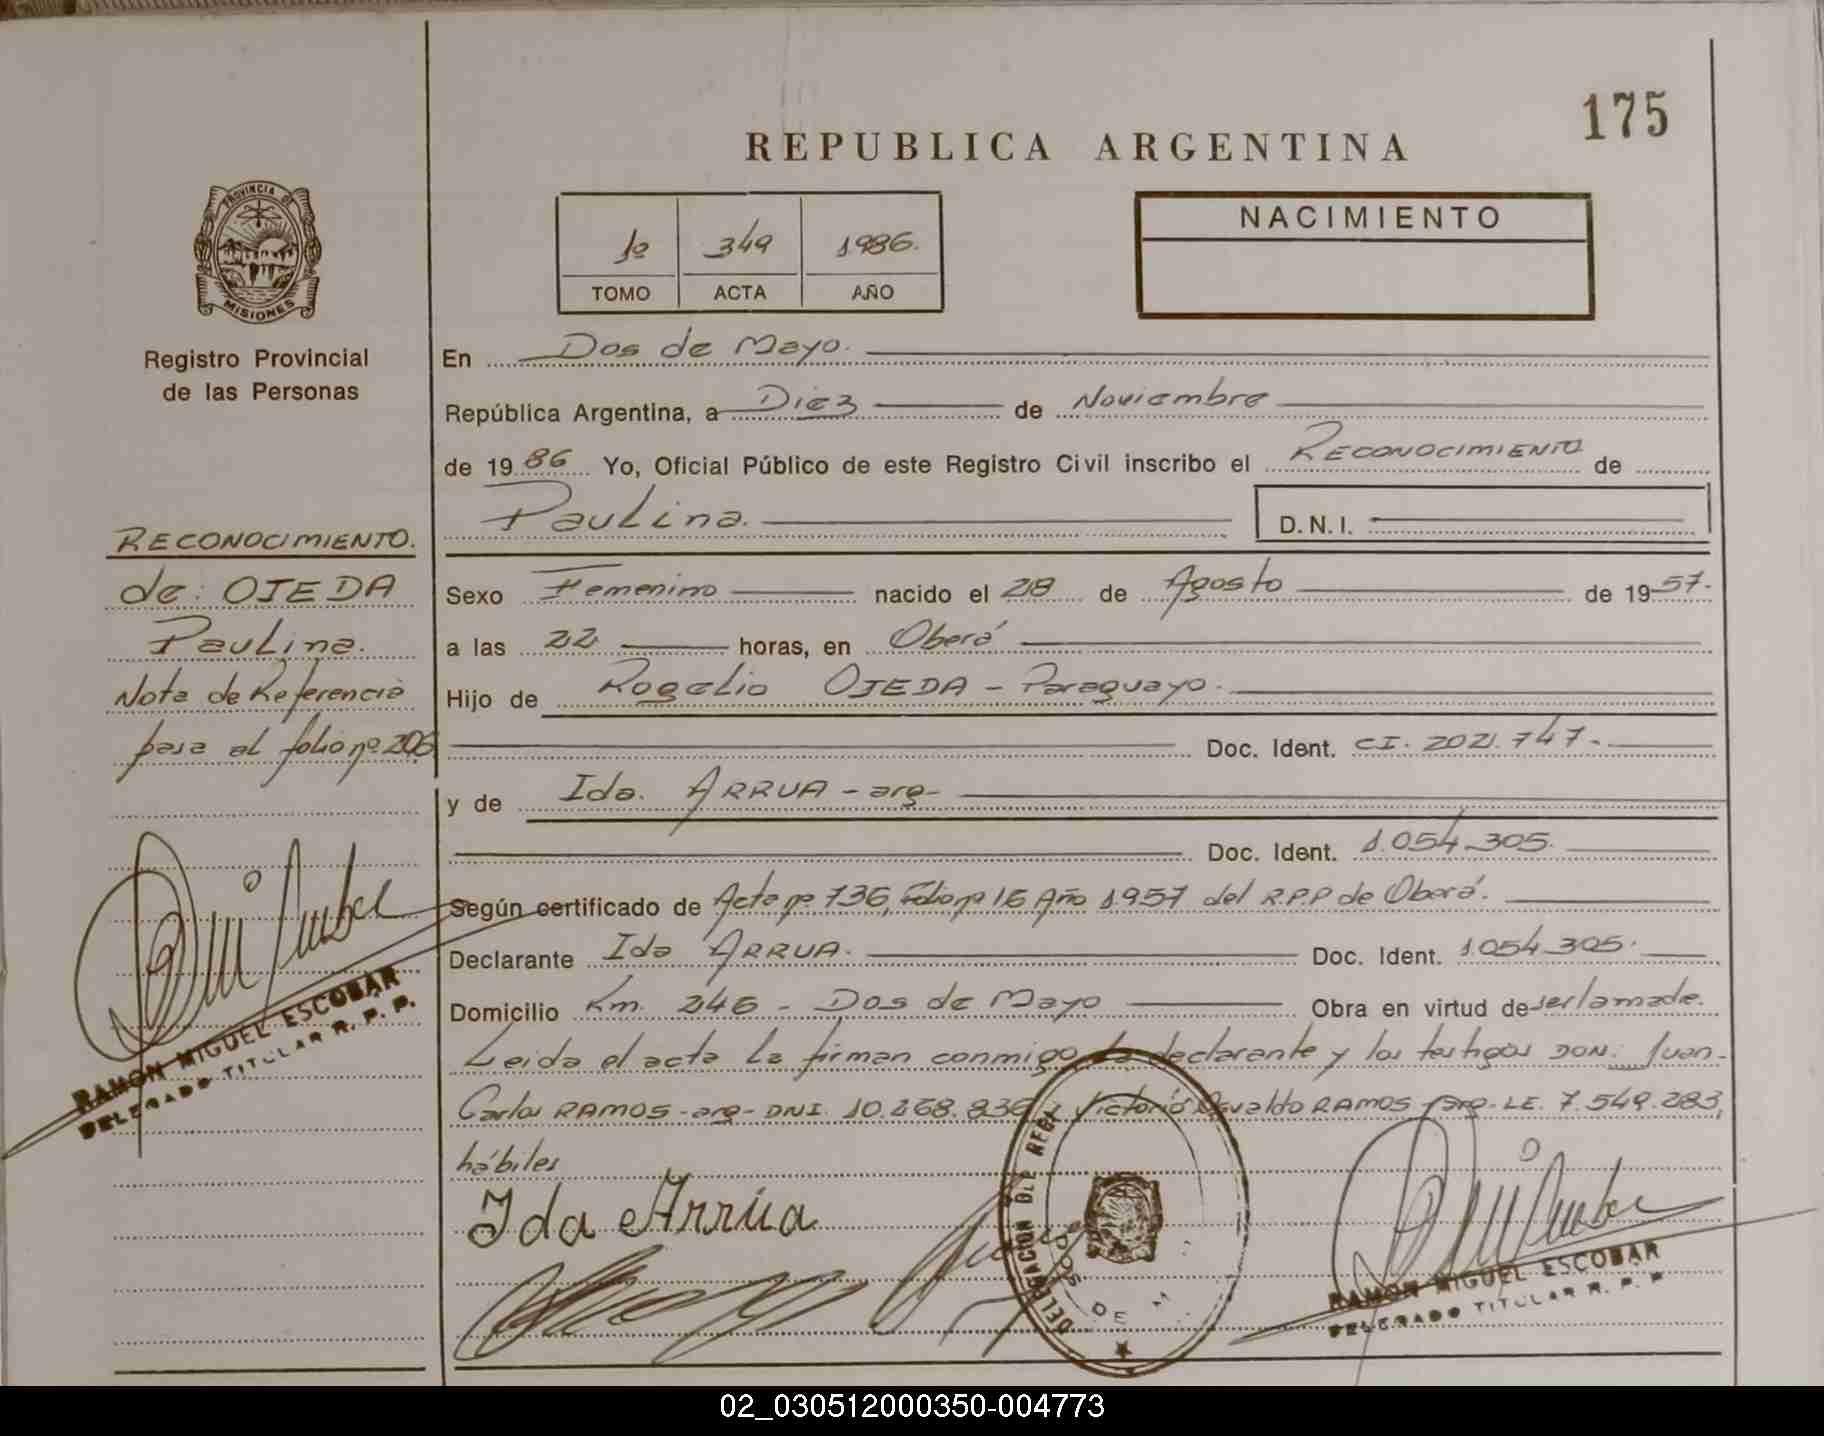 175
REPUBLICA ARGENTINA
PROVINCIA DE
MISIONES
Registro Provincial
de las Personas
1º 349 1986.
TOMO ACTA AÑO
NACIMIENTO
RECONOCIMIENTO.
de: OJEDA
Paulina.
Nota de Referencia
pasa al folio nº 206
RAMON MIGUEL ESCOBAR
DELEGADO TITULAR R. P. P.
En Dos de Mayo.
República Argentina, a Diez de Noviembre
de 1986 Yo, Oficial Público de este Registro Civil inscribo el RECONOCIMIENTO de
Paulina. D.N.I.
Sexo Femenino nacido el 28 de Agosto de 1957.
a las 22 horas, en Oberá
Hijo de Rogelio OJEDA - Paraguayo.
Doc. Ident. CI. 202.747.
y de Ida. ARRUA - arg-
Doc. Ident. 1.054.305.
Según certificado de Acta nº 736, Folio nº 16 Año 1957 del R.P.P de Oberá.
Declarante Ida ARRUA. Doc. Ident. 1.054.305.
Domicilio Km. 246 - Dos de Mayo Obra en virtud de ser la madre.
Leida el acta la firman conmigo la declarante y los testigos DON: Juan-
Carlos RAMOS-arg-DNI. 10.268.836 y Victorio Osvaldo RAMOS-arg-LE. 7.549.283,
hábiles
Ida Arrúa
DELEGACION DLE REG.
DOS DE M
RAMON MIGUEL ESCOBAR
DELEGADO TITULAR R. P. P
02_030512000350-004773